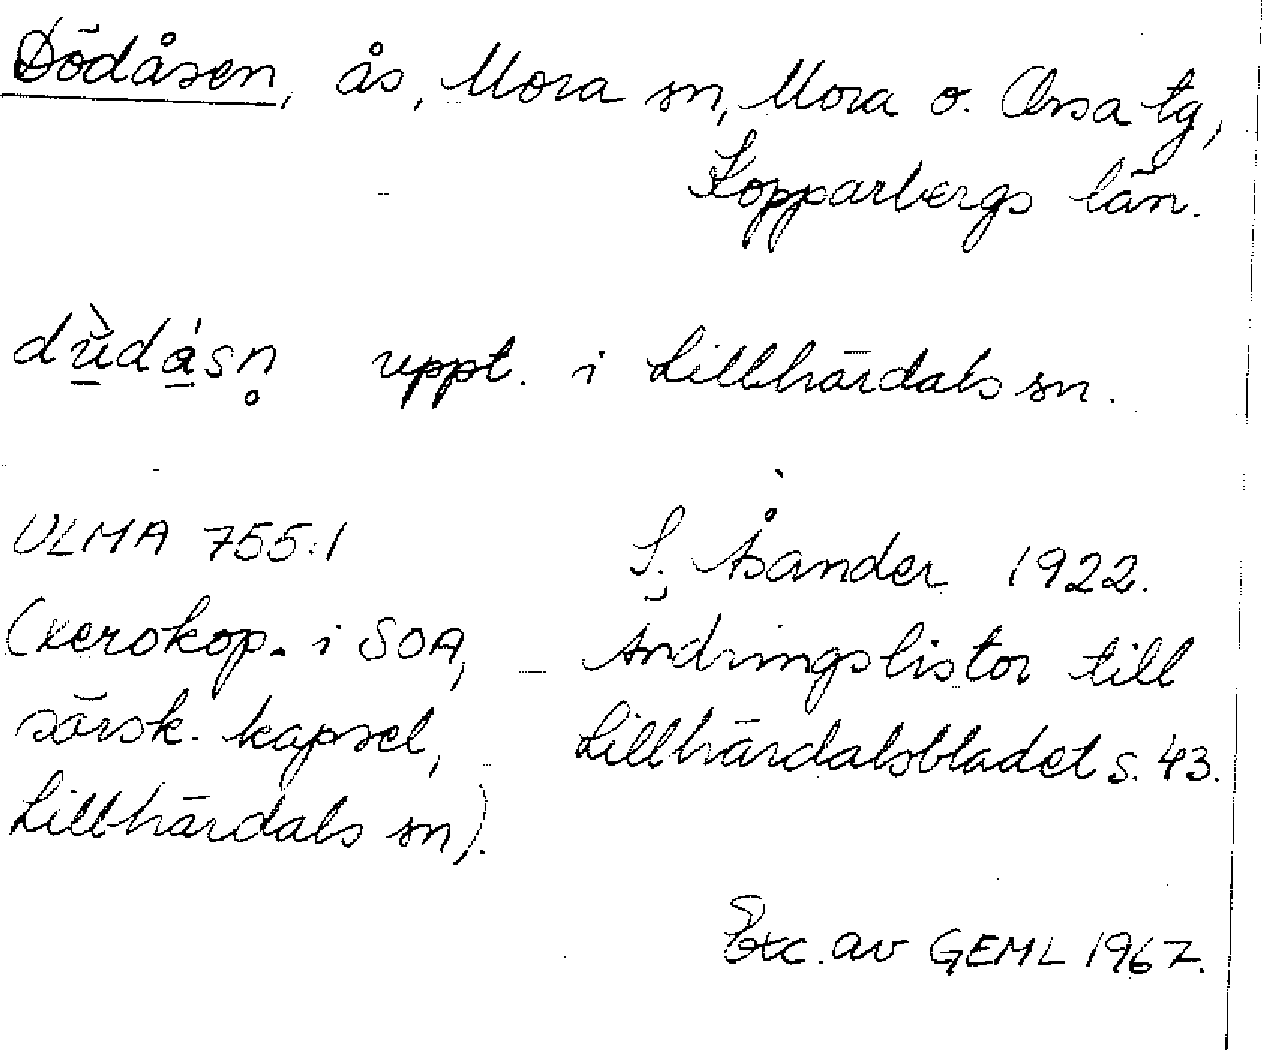 Dödåsen, ås, Mora sn, Mora o. Orsa tg,
Kopparbergs län.
dùdásn̥ uppt. i Lillhärdals sn.
ULMA 755:1 S. Åsander 1922.
(xerokop. i SOA, Ändringslistor till
särsk. kapsel, Lillhärdalsbladet s. 43.
Lillhärdals sn).
Exc. av GEML 1967.